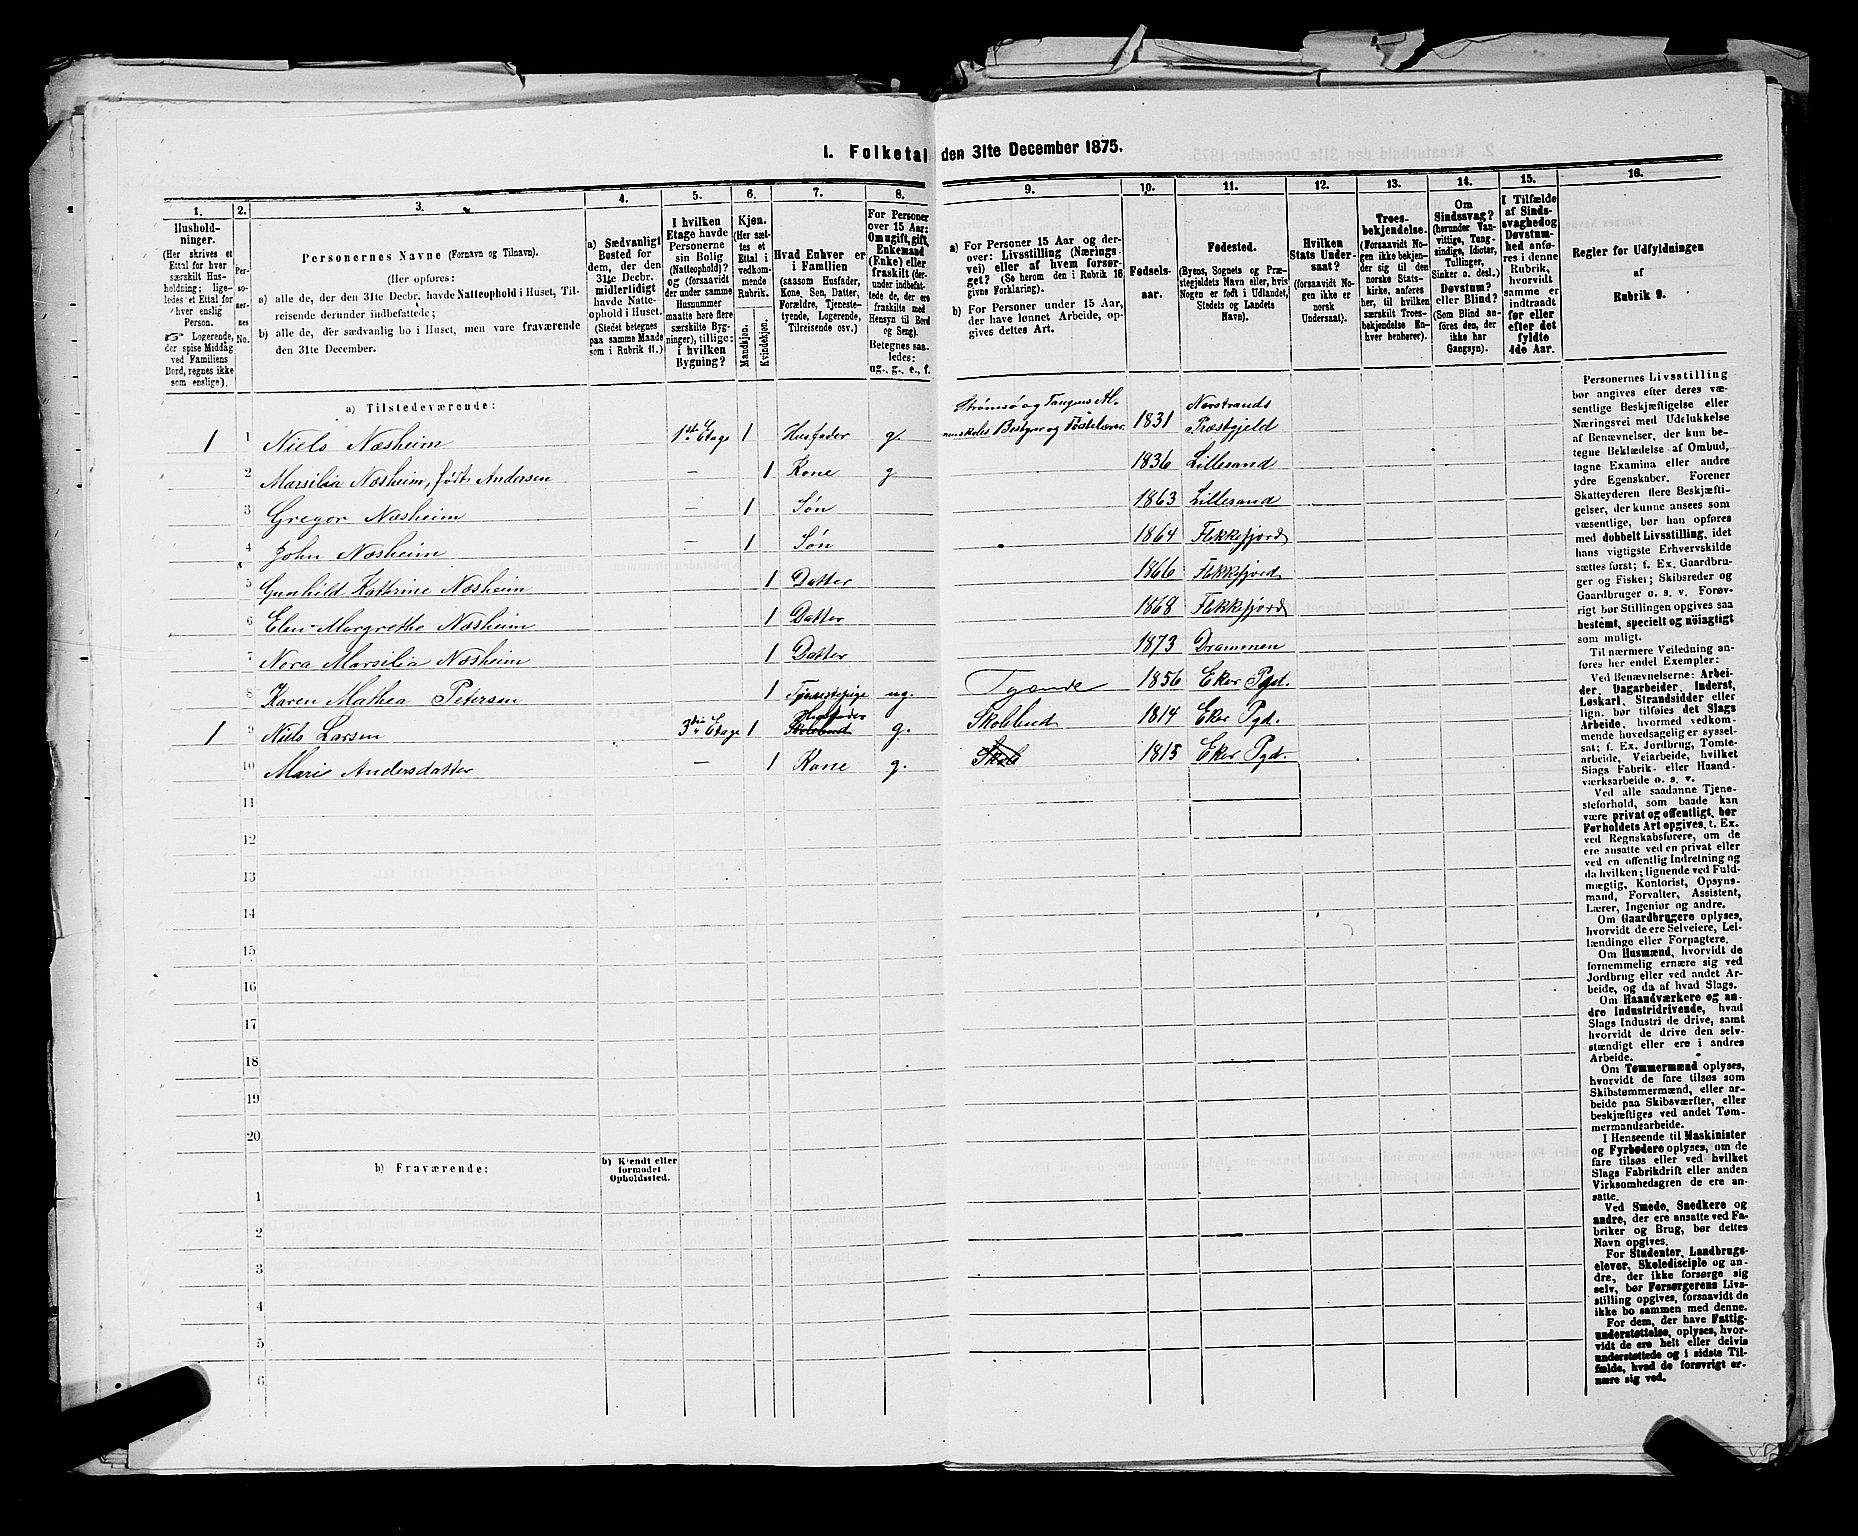 1. Folketal den 31te December 1875.
1. 2. 3. 4. 5. 6. 7. 8. 9. 10. 11. 12. 13. 14. 15. 16.
Hushold-
ninger.
(Her skrives et
Ettal for hver
særskilt Hus-
holdning; lige-
ledes et Ettal for
hver enslig
Person.
Logerende,
der spise Middag
ved Familiens
Bord, regnes ikke
som enslige).
Per-
so-
ner-
nes
No.
Personernes Navne (Fornavn og Tilnavn).
(Her opføres:
a) alle de, der den 31te Decbr. havde Natteophold i Huset, Til-
reisende derunder indbefattede;
b) alle de, der sædvanlig bo i Huset, men vare fraværende
den 31te December.
a) Sædvanligt
Bosted for
dem, der den
31te Decbr.
midlertidigt
havde Natte-
ophold i Huset.
(Stedet betegnes
paa samme Maade
som i Rubrik 11.)
I hvilken
Etage havde
Personerne
sin Bolig
(Natteophold)?
og (forsaavidt
der under samme
Husnummer
maatte høre flere
særskilte Byg-
ninger), tillige:
i hvilken
Bygning?
Kjøn.
(Her sæt-
tes et
Ettal i
vedkom-
mende
Rubrik.
Mandkjøn.
Kvindekjøn.
Hvad Enhver er
i Familien
(saasom Husfader,
Kone, Søn, Datter,
Forældre, Tjeneste-
tyende, Logerende,
Tilreisende osv.)
For Personer
over 15 Aar:
Om ugift, gift,
Enkemand
(Enke) eller
fraskilt (der-
under indbefat-
tede de, der ere
fraskilte med
Hensyn til Bord
og Seng).
Betegnes saa-
ledes:
ug., g., e., f.
a) For Personer 15 Aar og der-
over: Livsstilling (Nærings-
vei) eller af hvem forsør-
get? (Se herom den i Rubrik 16
givne Forklaring).
b) For Personer under 15 Aar,
der have lønnet Arbeide, op-
gives dettes Art.
Fødsels-
aar.
Fødested.
(Byens, Sognets og Præ-
stegjeldets Navn eller, hvis
Nogen er født i Udlandet,
Stedets og Landets
Navn).
Hvilken
Stats Under-
saat?
(forsaavidt No-
gen ikke er
norsk
Undersaat).
Troes-
bekjendelse.
(Forsaavidt No-
gen ikke bekjen-
der sig til den
norske Stats-
kirke, anføres
her, til hvilken
særskilt Troes-
bekjendelse En-
hver henhører).
Om
Sindssvag?
(herunder Van-
vittige, Tung-
sindige, Idioter,
Tullinger,
Sinker o. desl.)
Døvstum?
eller Blind?
(Som Blind an-
føres den, der
ikke har
Gangsyn).
I Tilfælde
af Sinds-
svaghed og
Døvstum-
hed anfø-
res i denne
Rubrik,
hvorvidt
samme er
indtraadt
før eller
efter det
fyldte
4de Aar.
Regler for Udfyldningen
af
Rubrik 9.
a) Tilstedeværende:
1 1 Niels Næsheim 1ste Etage 1 Husfader g. Strømsø og Tangens Al- menskoles Bestyrer og Førstelærer. 1831 Nerstrands Præstgjeld
2 Marsilia Næsheim, født Andersen — 1 Kone g 1836 Lillesand
3 Gregor Næsheim — 1 Søn 1863 Lillesand
4 John Næsheim — 1 Søn 1864 Flekkefjord
5 Gunhild Katerine Næsheim 1 Datter 1866 Flekkefjord
6 Elen Margrethe Næsheim 1 Datter 1868 Flekkefjord
7 Nora Marsilia Næsheim 1 Datter 1873 Drammen
8 Karen Mathea Petersen 1 Tjenestepige ug. Tyende 1856 Eker Pgd.
1 9 Niels Larsen 3die Etage 1 Husfader Skolebud g. Skolebud 1814 Eker Pgd.
10 Mari Andersdatter — 1 Kone g. Skole 1815 Eker Pgd.
11
12
13
14
15
16
17
18
19
20
b) Fraværende:
b) Kjendt eller
formodet
Opholdssted.
1
2
3
4
5
6
Personernes Livsstilling
bør angives efter deres væ-
sentlige Beskjæftigelse eller
Næringsvei med Udelukkelse
af Benævnelser, der kun be-
tegne Beklædelse af Ombud,
tagne Examina eller andre
ydre Egenskaber. Forener
Skatteyderen flere Beskjæfti-
gelser, der kunne ansees som
væsentlige, bør han opføres
med dobbelt Livsstilling, idet
hans vigtigste Erhvervskilde
sættes først; f. Ex. Gaardbru-
ger og Fisker; Skibsreder og
Gaardbruger o. s. v. Forøv-
rigt bør Stillingen opgives saa
bestemt, specielt og nöiagtigt
som muligt.
Til nærmere Veiledning an-
føres her endel Exempler:
Ved Benævnelserne: Arbei-
der, Dagarbeider, Inderst,
Løskarl, Strandsidder eller
lign. bør tilføies det Slags
Arbeide, hvormed vedkom-
mende hovedsagelig er syssel-
sat; f. Ex. Jordbrug, Tomte-
arbeide, Veiarbeide, hvilket
Slags Fabrik- eller Haand-
værksarbeide o. s. v.
Ved alle saadanne Tjene-
steforhold, som baade kan
være privat og offentligt, bør
Forholdets Art opgives, t. Ex.
ved Regnskabsførere, om de
ere ansatte ved en privat eller
ved en offentlig Indretning og
da hvilken; lignende ved Fuld-
mægtig, Kontorist, Opsyns-
mand, Forvalter, Assistent,
Lærer, Ingeniør og andre.
Om Gaardbrugere oplyses,
hvorvidt de ere Selveiere, Lei-
lændinge eller Forpagtere.
Om Husmænd, hvorvidt de
fornemmelig ernære sig ved
Jordbrug eller ved andet Ar-
beide, og da af hvad Slags.
Om Haandværkere og an-
dre Industridrivende, hvad
Slags Industri de drive, samt
hvorvidt de drive den selv-
stændigt eller ere i andres
Arbeide.
Om Tømmermænd oplyses,
hvorvidt de fare tilsøs som
Skibstømmermænd, eller ar-
beide paa Skibsværfter, eller
beskjæftiges ved andet Tøm-
mermandsarbeide.
I Henseende til Maskinister
og Fyrbødere oplyses, om de
fare tilsøs eller ved hvilket
Slags Fabrikdrift eller anden
Virksomhedsgren de ere an-
satte.
Ved Smede, Snedkere og
andre, der ere ansatte ved Fa-
briker og Brug, bør dettes
Navn opgives.
For Studenter, Landbrugs-
elever, Skoledisciple og an-
dre, der ikke forsørge sig
selv, bør Forsørgerens Livs-
stilling opgives, forsaavidt de
ikke bo sammen med denne.
For dem, der have Fattig-
understøttelse, oplyses, hvor-
vidt de ere helt eller delvis
understøttede og i sidste Til-
fælde, hvad de forøvrigt er-
nære sig ved.